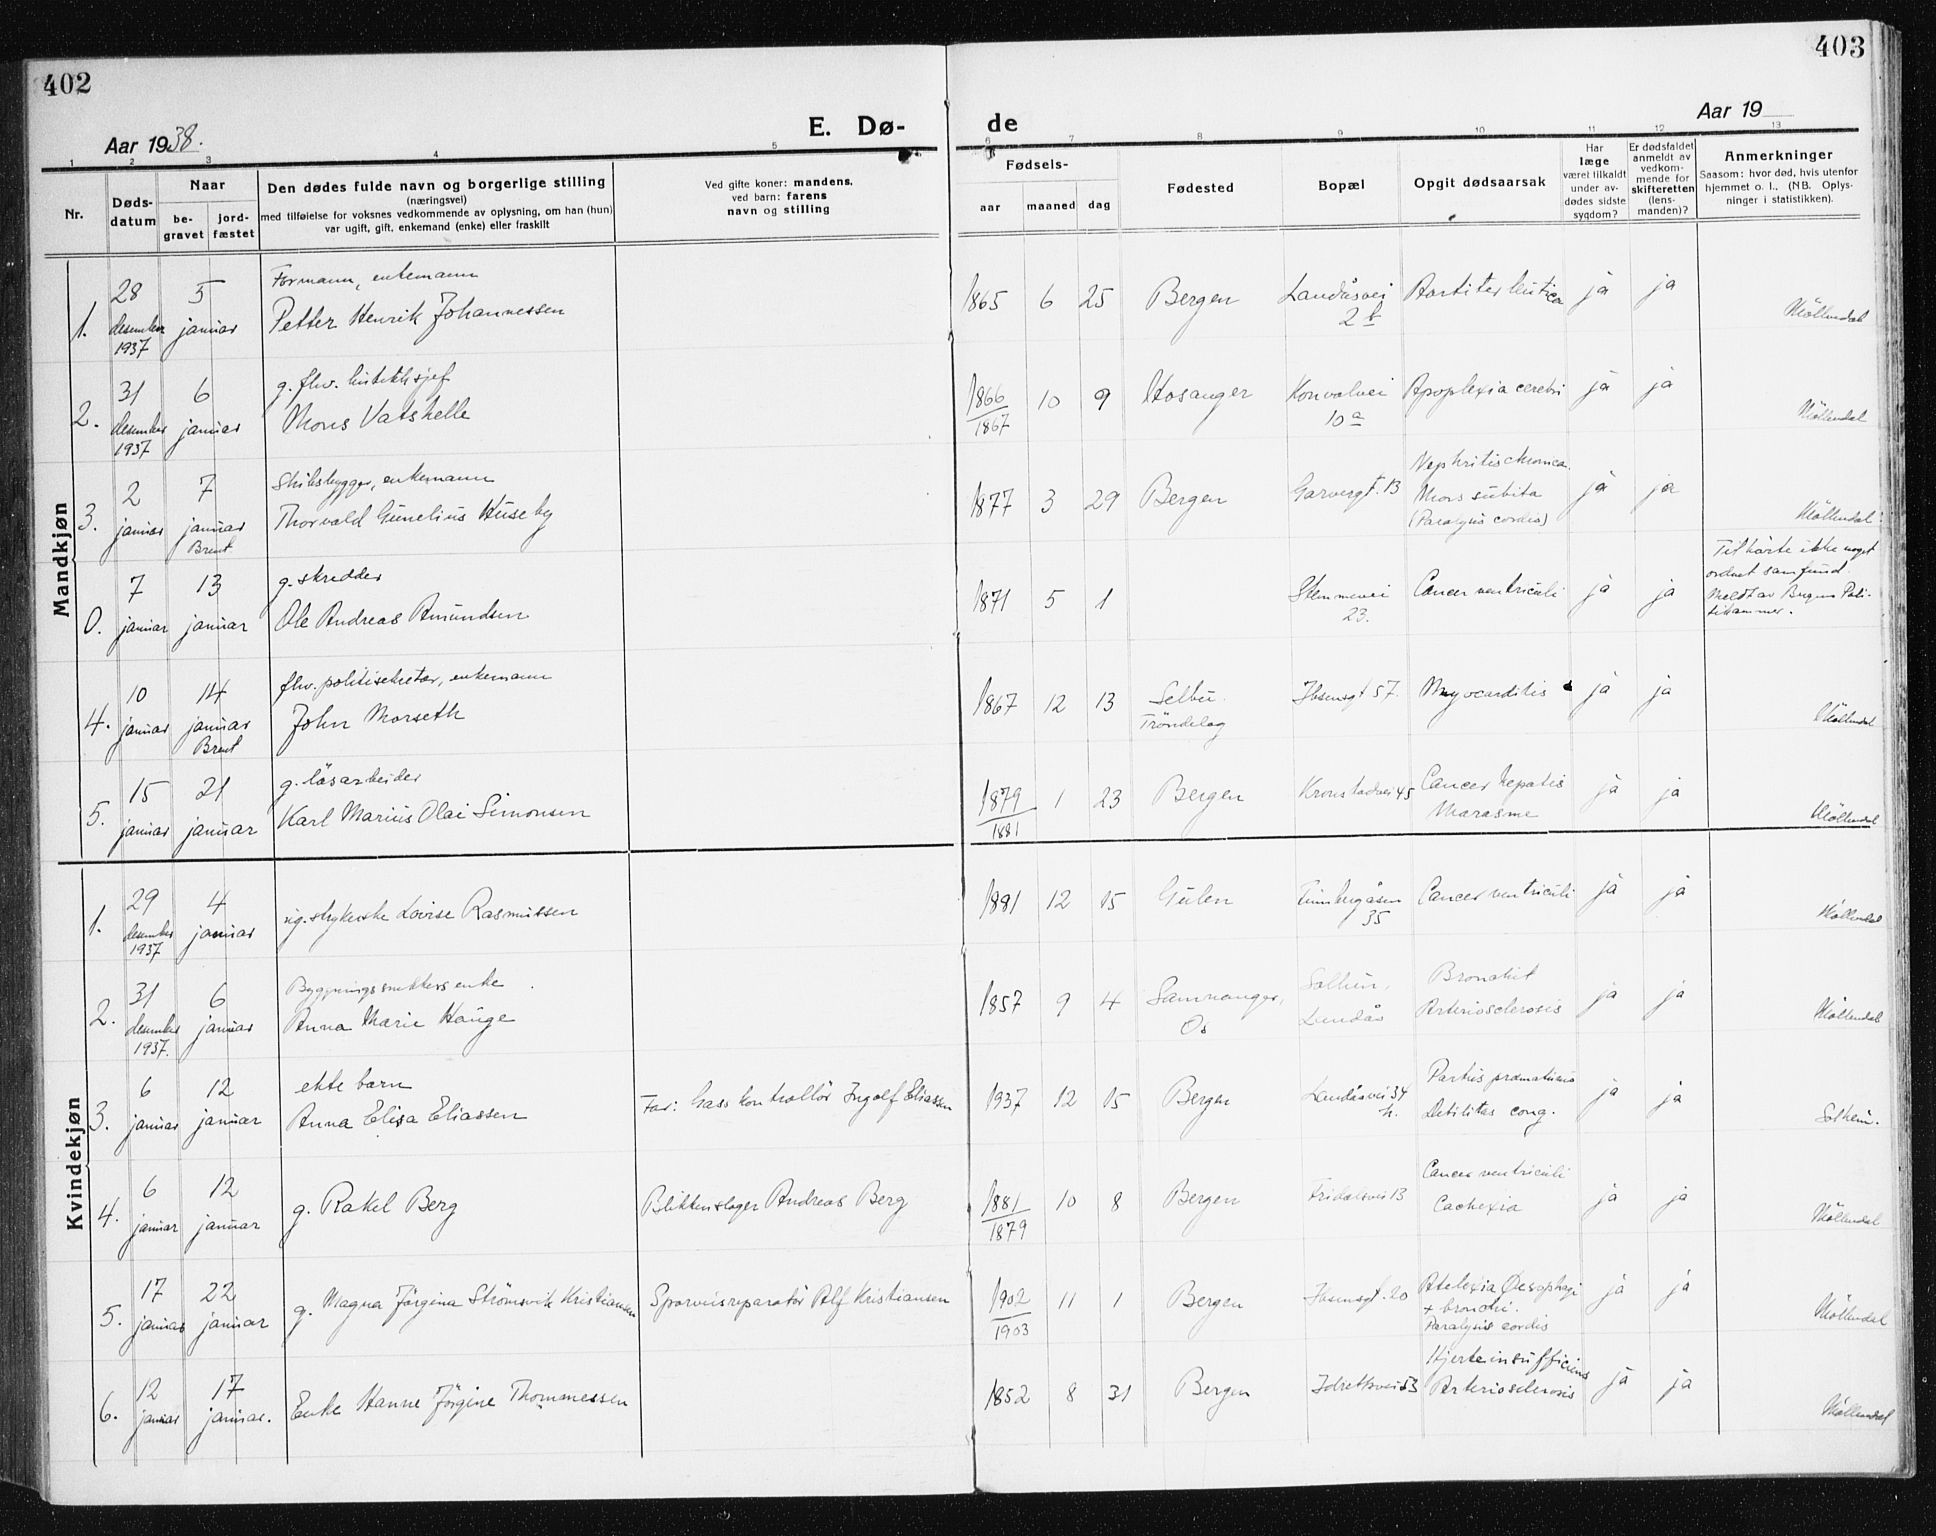 402
403
Aar 1938.
E. Dø-
de
Aar 19
1 2 3 4 5
6 7 8 9 10 11 12 13
Nr.
Døds-
datum
Naar
be-
gravet
jord-
fæstet
Den dødes fulde navn og borgerlige stilling
(næringsvei)
med tilføielse for voksnes vedkommende av oplysning, om han (hun)
var ugift, gift, enkemand (enke) eller fraskilt
Ved gifte koner: mandens,
ved barn: farens
navn og stilling
Fødsels-
aar maaned dag
Fødested
Bopæl
Opgit dødsaarsak
Har
læge
været tilkaldt
under av-
dødes sidste
sygdom?
Er dødsfaldet
anmeldt av
vedkom-
mende for
skifteretten
(lens-
manden)?
Anmerkninger
Saasom: hvor død, hvis utenfor
hjemmet o. l., (NB. Oplys-
ninger i statistikken).
Mandkjøn
1. 28 desember 1937 5 januar
Formann, enkemann
Petter Henrik Johannessen
1865 6 25 Bergen Landåsvei 2 b Aortites luetica ja ja Möllendal
2. 31 desember 1937 6 januar
g. fhv.
Mons Vatshelle
1866
1867 10 9 Hosanger Konvalvei 10 a Apoplexia cerebri ja ja Möllendal
3. 2 januar 7 januar Brent
Skibsbygger, enkemann
Thorvald Gunelius Huseby
1877 3 29 Bergen Garvergt. 13 Nephritis chronica.
Mors subita
(Paralysis cordis) ja ja Möllendal
0. 7 januar 13 januar
g. skredder
Ole Andreas Amundsen
1871 5 1 Stemmevei 23. Cancer ventriculi ja ja
Tilhörte ikke noget
ordnet samfund.
Meldt av Bergens Poli-
tikammer.
4. 10 januar 14 januar Brent
fhv. politisekretær, enkemann
John Morseth
1867 12 13 Selbu.
Tröndelag Ibsensgt 57. Myocarditis ja ja Möllendal
5. 15 januar 21 januar
g. løsarbeider
Karl Marius Olai Simonsen
1879
1881 1 23 Bergen Kronstadvei 45 Cancer hepatis
Marasme ja ja Möllendal
Kvindekjøn
1. 29 desember 1937 4 januar
ug. strykerske Lovise Rasmussen
1881 12 15 Gulen 35 Cancer ventriculi ja ja Möllendal
2. 31 desember 1937. 6 januar
Bygningssnekkers enke
Anna Marie Hauge
1857 9 4 Samnanger,
Os Solhem,
Landås Bronchit
Arteriosclerosis ja ja Möllendal
3. 6 januar 12 januar
ekte barn
Anna Elisa Eliassen
Far: Gasskontrollör Ingolf Eliassen
1937 12 15 Bergen Landåsvei 34 h. Partus præmaturus
Debilitas cong. ja ja Solheim.
4. 6 januar 12 januar
g. Rakel Berg
Blikkenslager Andreas Berg
1881
1879 10 8 Bergen Fridalsvei 13 Cancer ventriculi
Cachexia ja ja Möllendal
5. 17 januar 22 januar
g. Magna Jörgina Strömsvik Kristiansen
Sporveisreparatör Alf Kristiansen
1902
1903 11 1 Bergen Ibsensgt. 20 Oesophagi
+ bronchi.
Paralysis cordis ja ja Möllendal
6. 12 januar 17 januar.
Enke Hanne Jörgine Thommessen
1852 8 31 Bergen Idrettsvei 53 Hjerteinsufficiens
Arteriosclerosis ja ja Möllendal